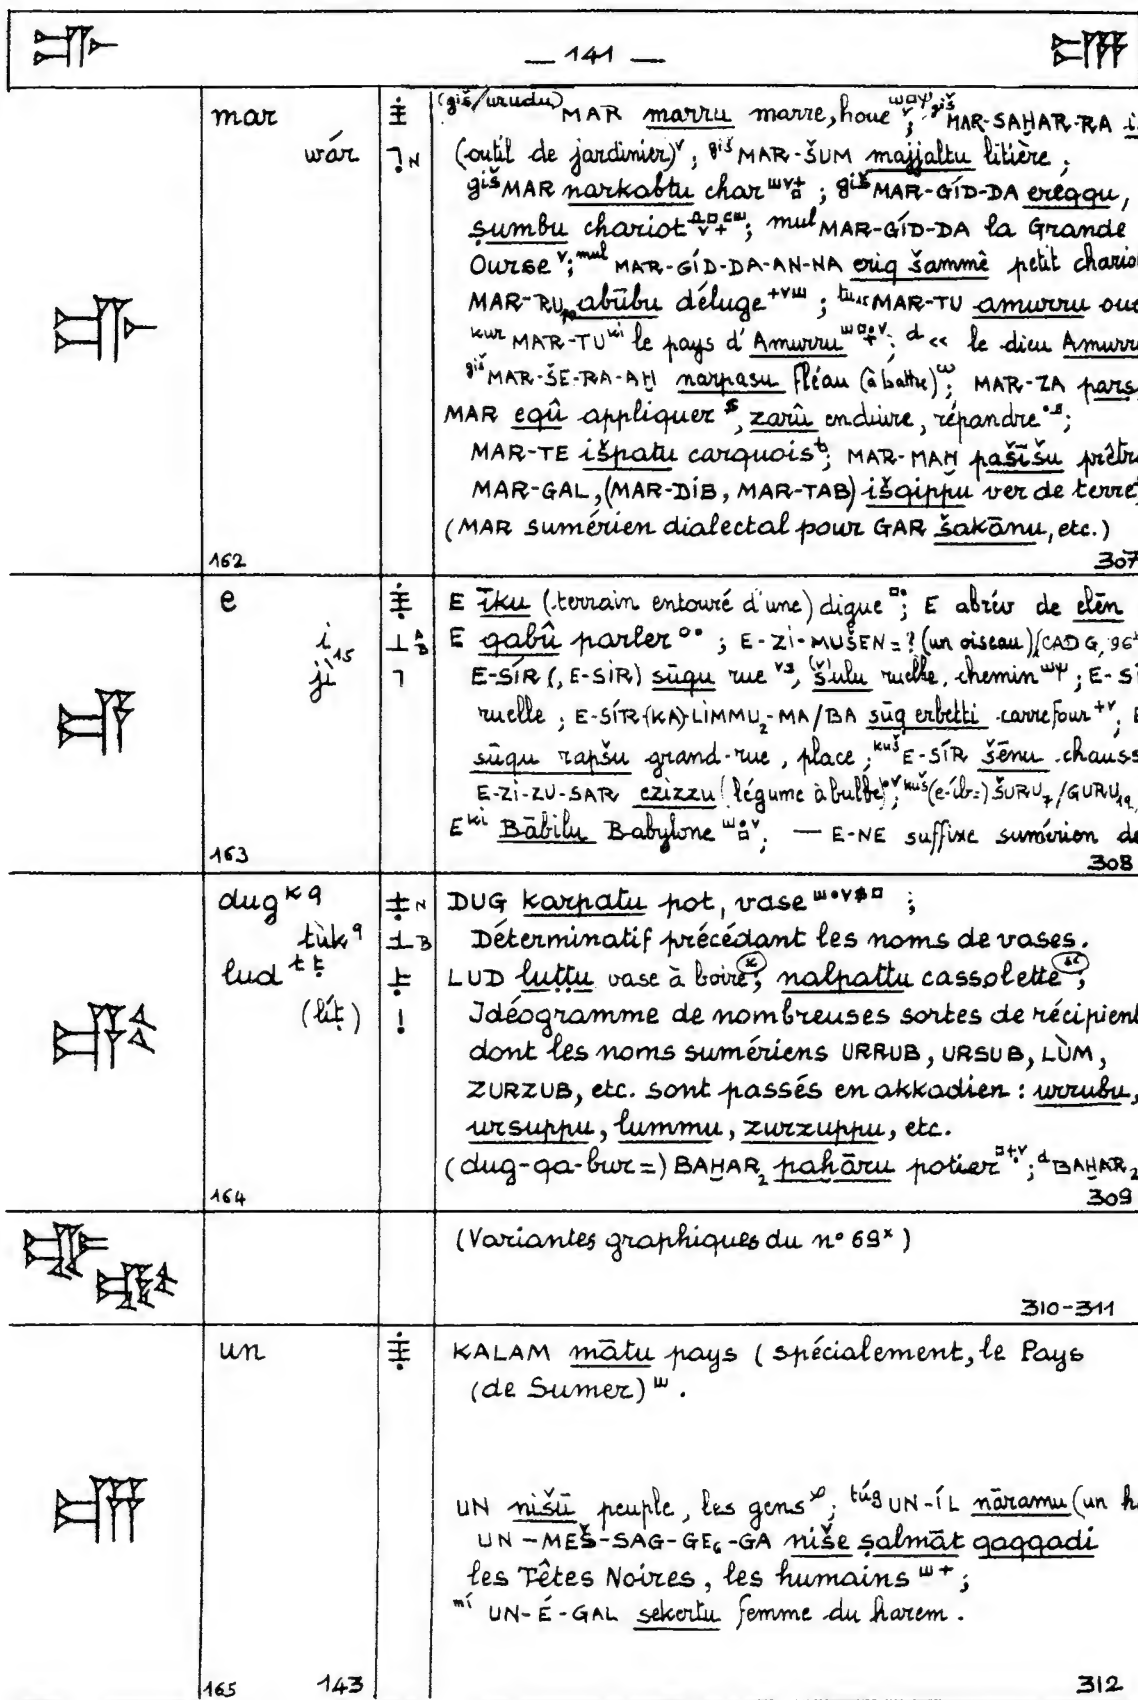 — 141 —
mar
wár
(giš/urudu)MAR marru marre, houe; gišMAR-SAḪAR-RA
(outil de jardinier); gišMAR-ŠUM majjaltu litière;
gišMAR narkabtu char; gišMAR-GÍD-DA ereqqu,
ṣumbu chariot; mulMAR-GÍD-DA la Grande
Ourse; mulMAR-GÍD-DA-AN-NA eriq šammê petit
MAR-RU₁₀ abūbu déluge; tu₁₅MAR-TU amurru
kurMAR-TUki le pays d'Amurru; d<< le dieu Amurru
gišMAR-ŠE-RA-AḪ narpasu fléau (à battre); MAR-ZA
MAR eqû appliquer, zarû enduire, répandre;
MAR-TE išpatu carquois; MAR-MAḪ pašīšu
MAR-GAL, (MAR-DIB, MAR-TAB) išqippu ver de terre
(MAR sumérien dialectal pour GAR šakānu, etc.)
162 307
e
i₁₅
jì
E īku (terrain entouré d'une) digue; E abrév de elēn
E qabû parler; E-ZI-MUŠEN = ? (un oiseau) (CAD G, 96
E-SÍR (, E-SIR) sūqu rue, sulu ruelle, chemin;
ruelle; E-SÍR-(KA)-LIMMU₂-MA/BA sūq erbetti carrefour;
sūqu rapšu grand-rue, place; kušE-SÍR šēnu
E-ZI-ZU-SAR ezizzu (légume à bulbe); kuš(e-íb=) ŠURU₇/GURU₁₉
Eki Bābilu Babylone; — E-NE suffixe sumérien
163 308
dug k q
tùk q
lud t ṭ
(líṭ)
DUG karpatu pot, vase;
Déterminatif précédant les noms de vases.
LUD luṭṭu vase à boire; nalpattu cassolette;
Idéogramme de nombreuses sortes de récipient
dont les noms sumériens URRUB, URSUB, LÙM,
ZURZUB, etc. sont passés en akkadien : urrubu,
ursuppu, lummu, zurzuppu, etc.
(dug-qa-bur=) BAḪAR₂ paḫāru potier; dBAḪAR₂
164 309
(Variantes graphiques du n° 69x)
310-311
un
KALAM mātu pays (spécialement, le Pays
(de Sumer).
UN nišū peuple, les gens; túgUN-ÍL nāramu (un
UN-MEŠ-SAG-GE₆-GA niše ṣalmāt qaqqadi
les Têtes Noires, les humains;
míUN-É-GAL sekertu femme du harem.
165 143 312